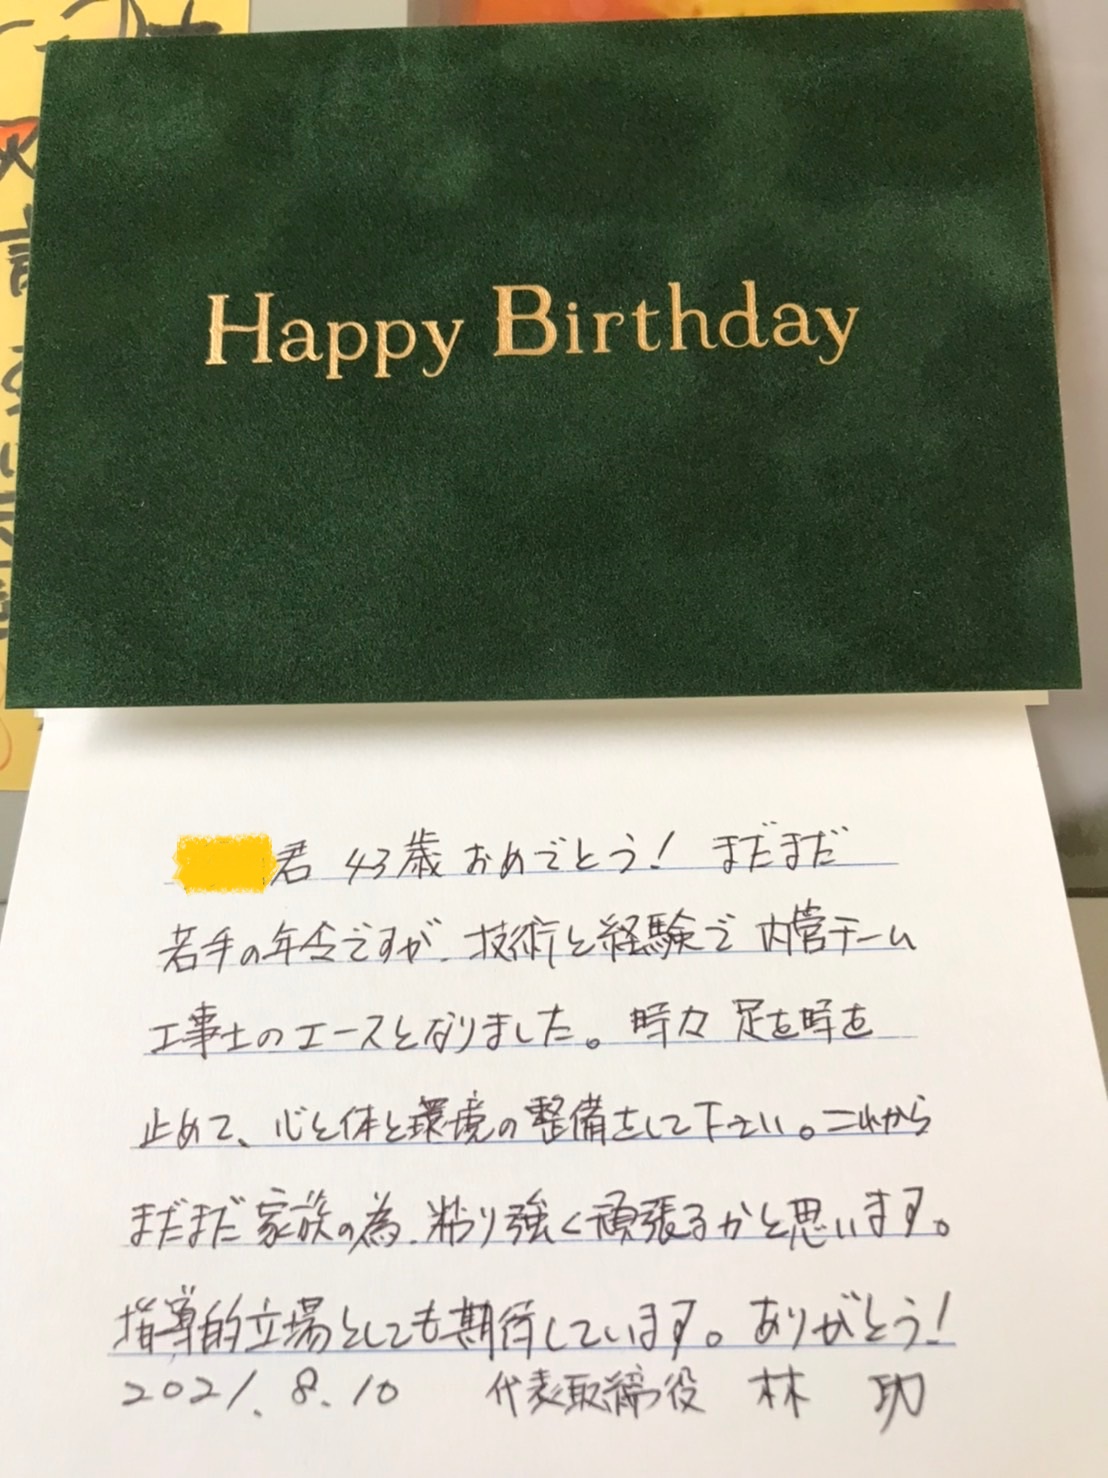 Happy Birthday
君 43歳 おめでとう! まだまだ
若手の年令ですが、技術と経験で 内管チーム
工事士のエースとなりました。 時々 足を時を
止めて、心と体と環境の整備をして下さい。これから
まだまだ家族の為、粘り強く頑張るかと思います。
指導的立場としても期待しています。 ありがとう!
2021.8.10 代表取締役 林 功